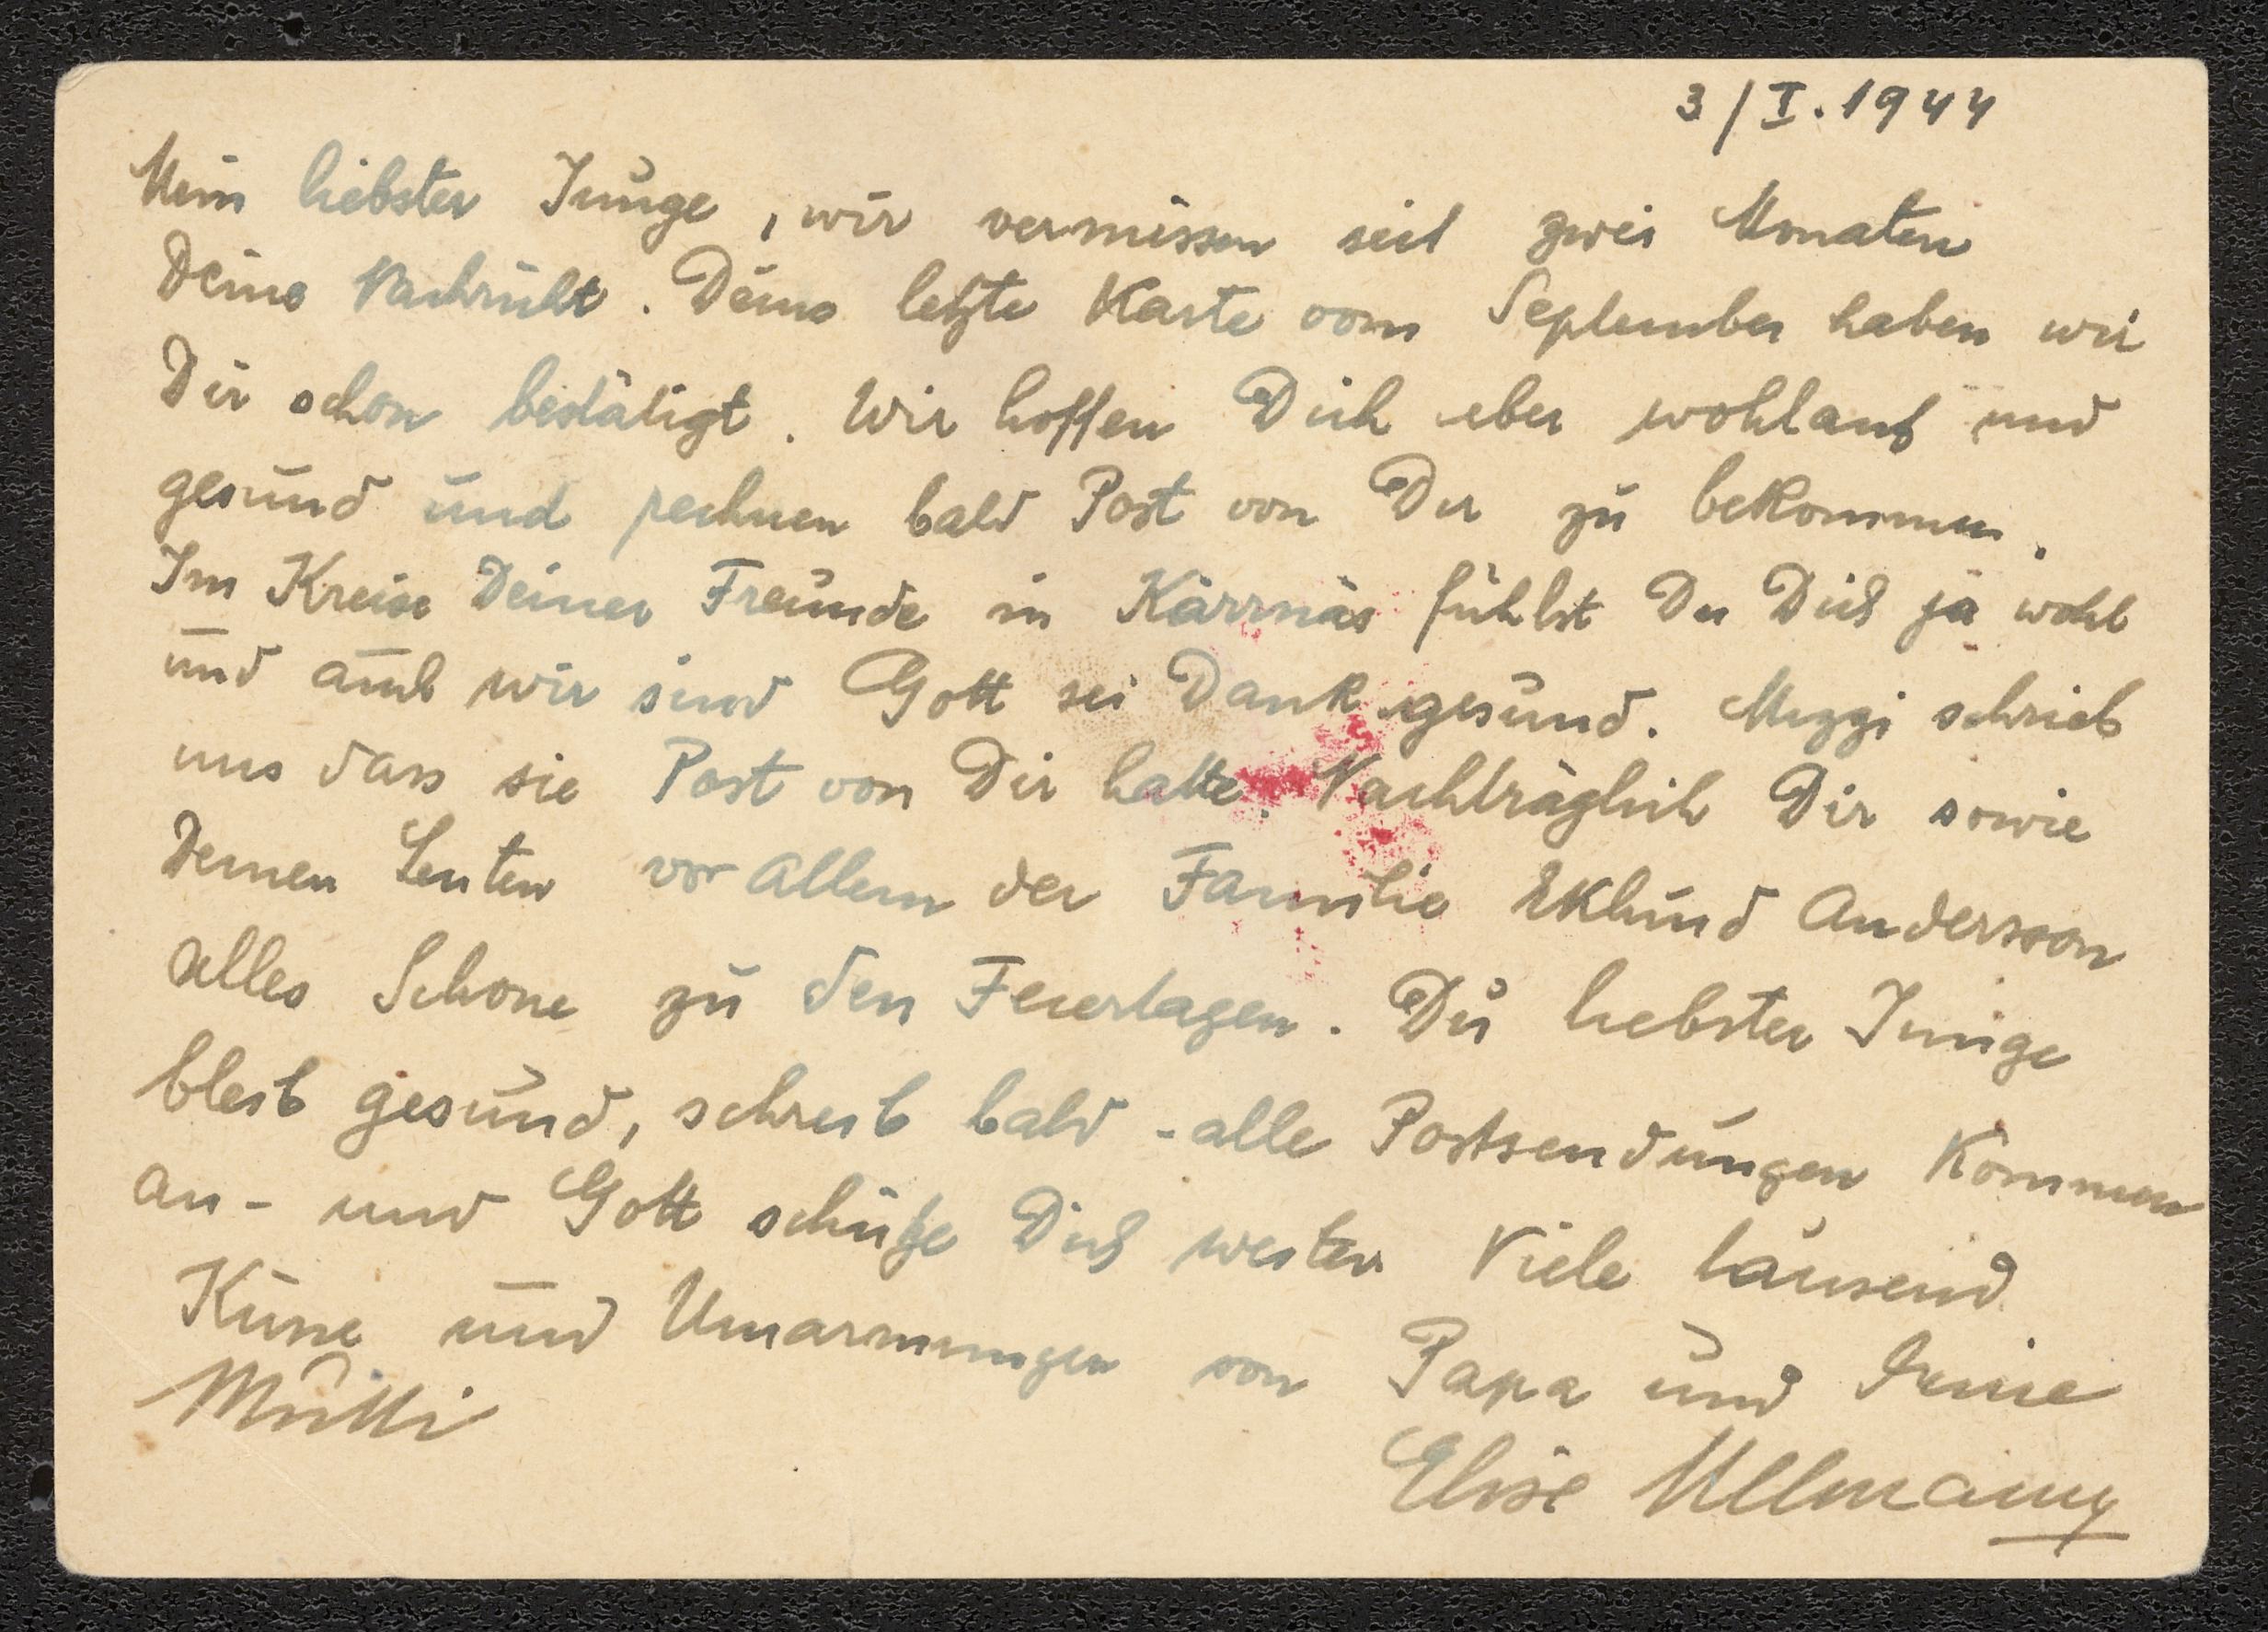 3/I. 1944
Mein liebster Junge, wir vermissen seit zwei Monaten
Deine Nachricht. Deine letzte Karte vom September haben wir
Dir schon bestätigt. Wir hoffen Dich aber wohlauf und
gesund und rechnen bald Post von Dir zu bekommen.
Im Kreise Deiner Freunde in Kärrnäs fühlst Du Dich ja wohl
und auch wir sind Gott sei Dank gesund. Mizzi schrieb
uns dass sie Post von Dir hatte. Nachträglich Dir sowie
Deinen Leuten vor Allem der Familie Eklund Andersson
alles Schöne zu den Feiertagen. Du liebster Junge
bleib gesund, schreib bald - alle Postsendungen kommen
an - und Gott schütze Dich weiter. Viele tausend
Küsse und Umarmungen von Papa und Deine
Mutti
Elise Ullmann